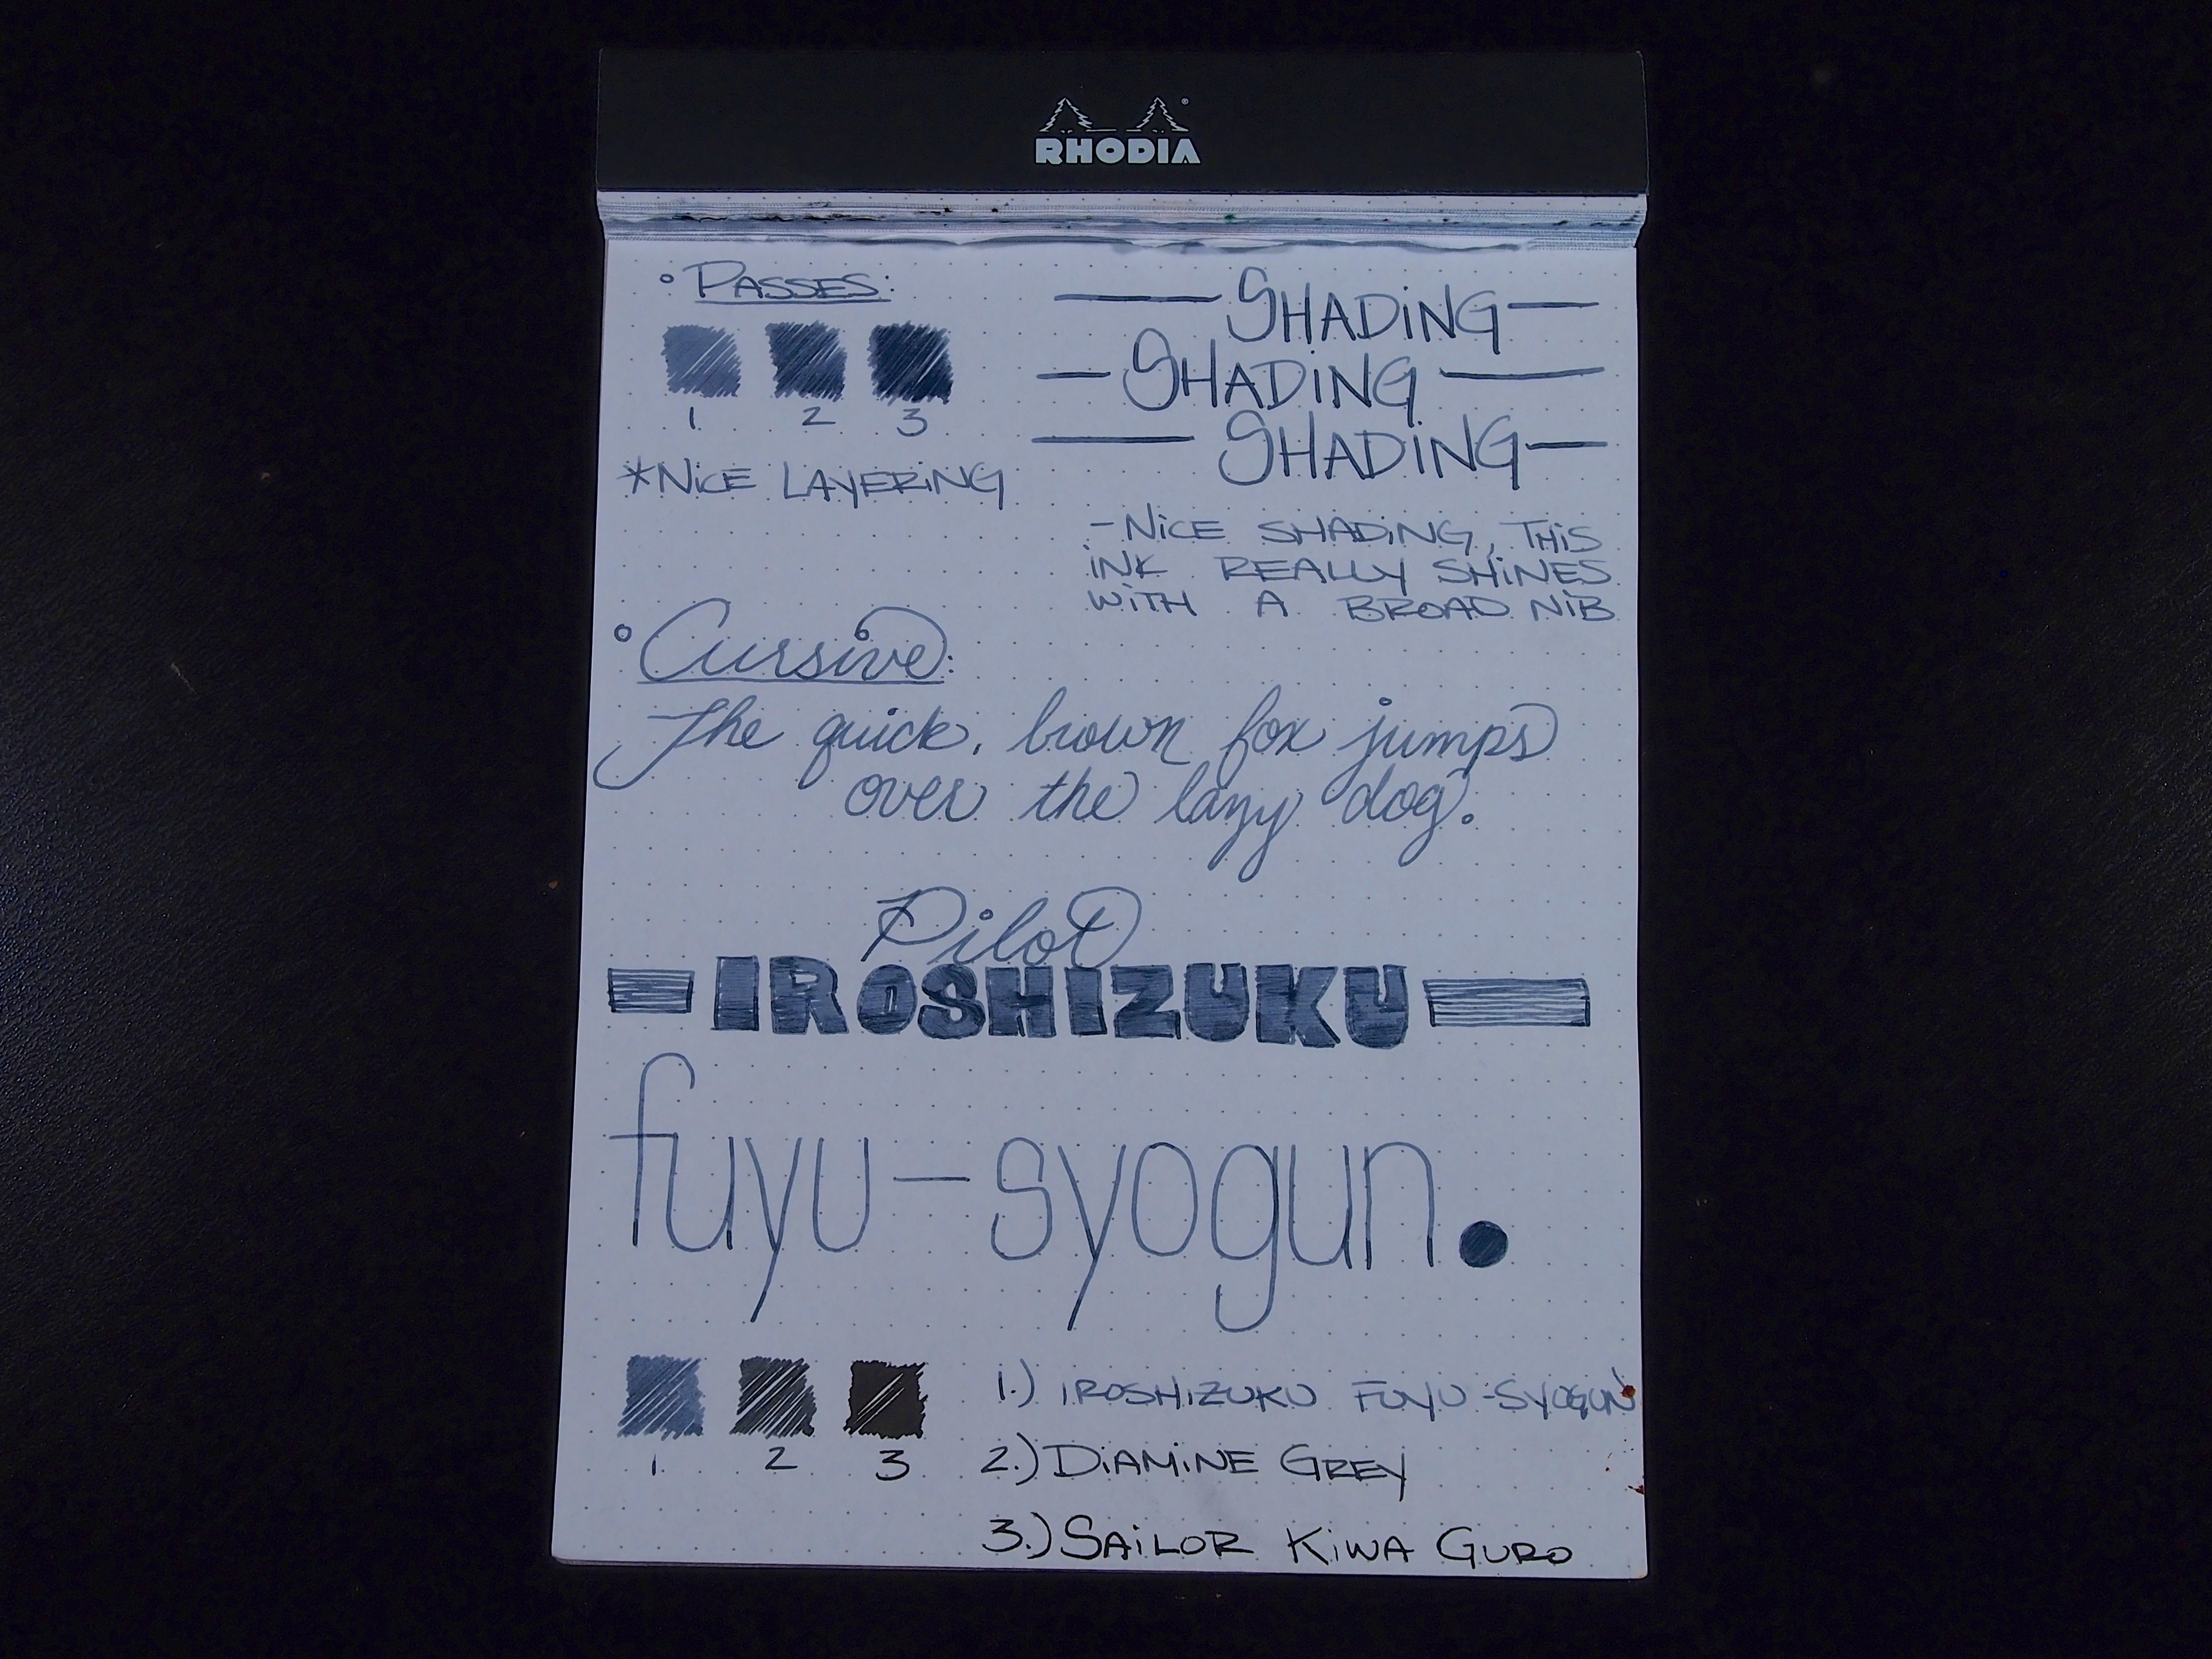 RHODIA
° PASSES:
1 2 3
*NiCE LAYERiNG
SHADiNG
SHADiNG
SHADiNG
-NiCE SHADiNG, THiS
iNK REALLY SHiNES
WiTH A BROAD NiB
° Cursive:
The quick, brown fox jumps
over the lazy dog.
Pilot
IROSHIZUKU
fuyu-syogun.
1 2 3
1.) IROSHiZUKU FUYU-SYOGUN
2.) DiAMiNE GREY
3.) SAiLOR KiWA GURO